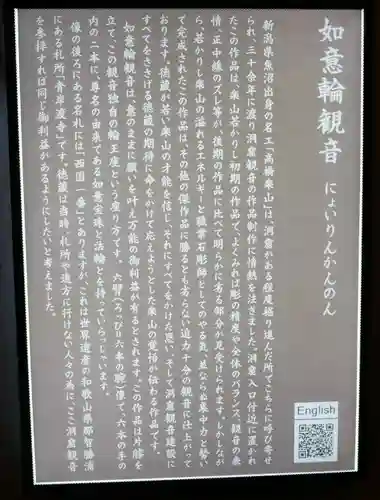 如意輪観音 にょいりんかんのん
新潟県魚沼出身の名工「高橋楽山」は、洞窟がある程度堀り進んだ所でこちらに呼び寄せ
られ、三十余年に渡り洞窟観音の作品制作に情熱を注ぎました。洞窟入口付近に置かれ
たこの作品は、楽山若かりし初期の作品で、よくみれば彫の精度や全体のバランス、観音の表
情、正中線のズレ等が、後期の作品に比べて明らかに劣る部分が見受けられます。しかしなが
ら、若かりし楽山の溢れるエネルギーと職業石彫師としてのやる気、並ならぬ集中力と勢い
で完成されたこの作品は、その他の傑作品に勝るとも劣らない迫力十分の観音に仕上がって
おります。徳蔵が若い楽山の才能を信じ、それにすべてをかけた思い、そして洞窟観音建設に
すべてをささげる徳蔵の期待に命をかけて応えようとした楽山の覚悟が伝わる作品です。
如意輪観音は、意のままに願いを叶え万能の御利益が有るとされます。この作品は片膝を
立て、この観音独自の輪王座という座り方です。六臂(ろっぴ)六本の腕像で、六本の手の
内の二本に、尊名の由来である如意宝珠と法輪とを持っていらっしゃいます。
像の後ろにある名札には「西国一番」とありますが、これは世界遺産の和歌山県那智勝浦
にある札所「青岸渡寺」です。徳蔵は当時、札所や遠方に行けない人々の為に、ここ洞窟観音
を参拝すれば同じ御利益があるようにしたいと考えました。
English